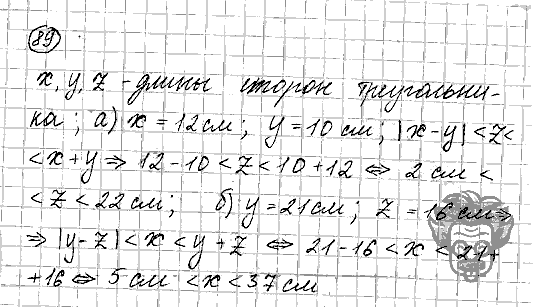 89
x, y, z - длины сторон треугольни-
ка; а) x = 12 см; y = 10 см; |x-y| < z <
< x + y ⇒ 12 - 10 < z < 10 + 12 ⇔ 2 см <
< z < 22 см; б) y = 21 см; z = 16 см ⇒
⇒ |y - z| < x < y + z ⇔ 21 - 16 < x < 21 +
+ 16 ⇔ 5 см < x < 37 см